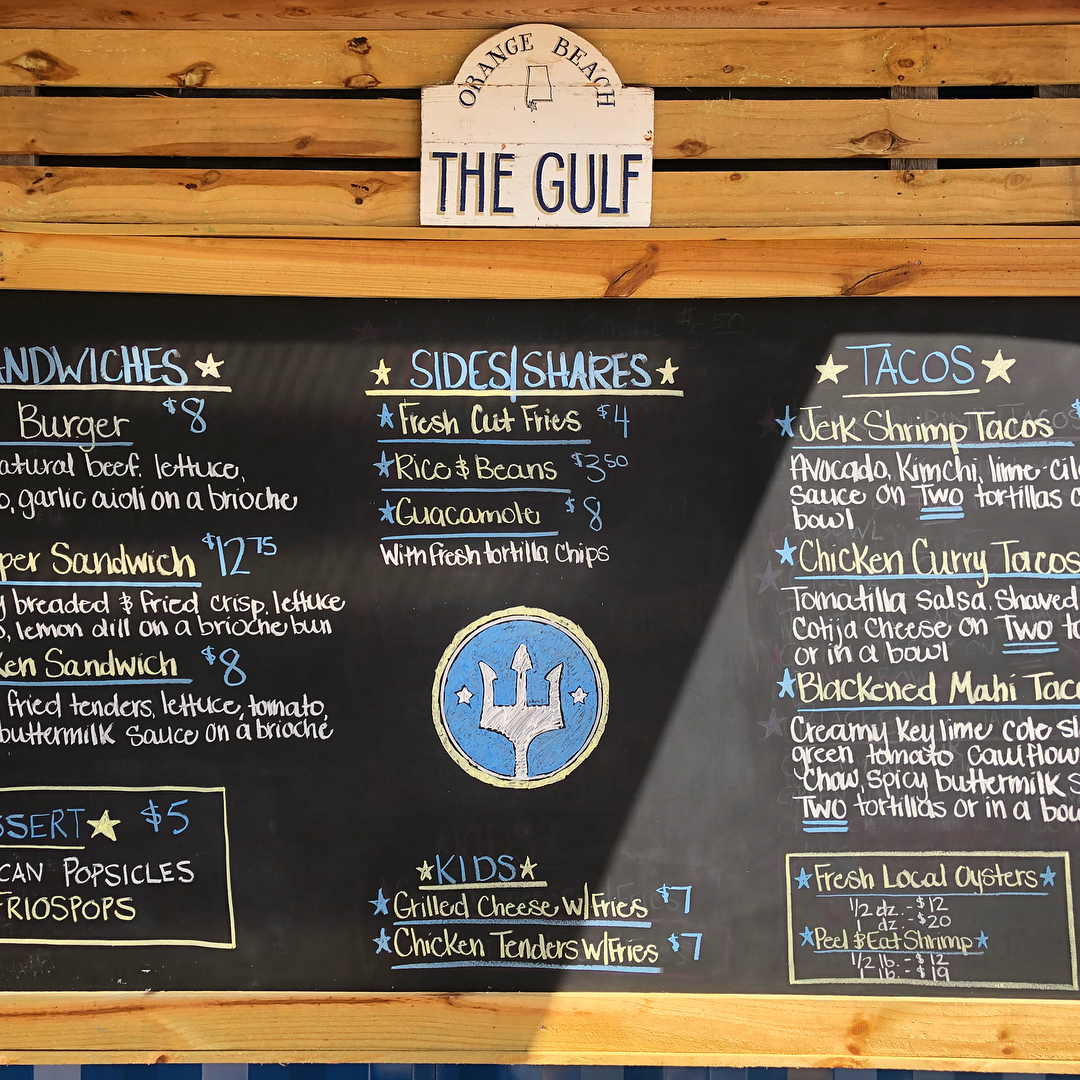 ORANGE BEACH
THE GULF
NDWICHES
Burger $8
atural beef, lettuce,
o, garlic aioli on a brioche
per Sandwich $12 75
y breaded & fried crisp, lettuce
o, lemon dill on a brioche bun
ken Sandwich $8
fried tenders, lettuce, tomato,
buttermilk sauce on a brioche
SSERT $5
CAN POPSICLES
FRIOSPOPS
SIDES/SHARES
Fresh Cut Fries $4
Rice & Beans $3 50
Guacamole $8
With fresh tortilla chips
KIDS
Grilled Cheese W/Fries $7
Chicken Tenders W/Fries $7
TACOS
Jerk Shrimp Tacos $
Avocado, Kimchi, lime-cil
sauce on Two tortillas o
bowl
Chicken Curry Tacos
Tomatilla Salsa, Shaved
Cotija Cheese on Two to
or in a bowl
Blackened Mahi Taco
Creamy Key lime cole sl
green tomato cauliflow
Chow, spicy buttermilk s
Two tortillas or in a bow
Fresh Local Oysters
1/2 dz. - $12
1 dz. - $20
Peel & Eat Shrimp
1/2 lb. - $12
1 lb. - $19